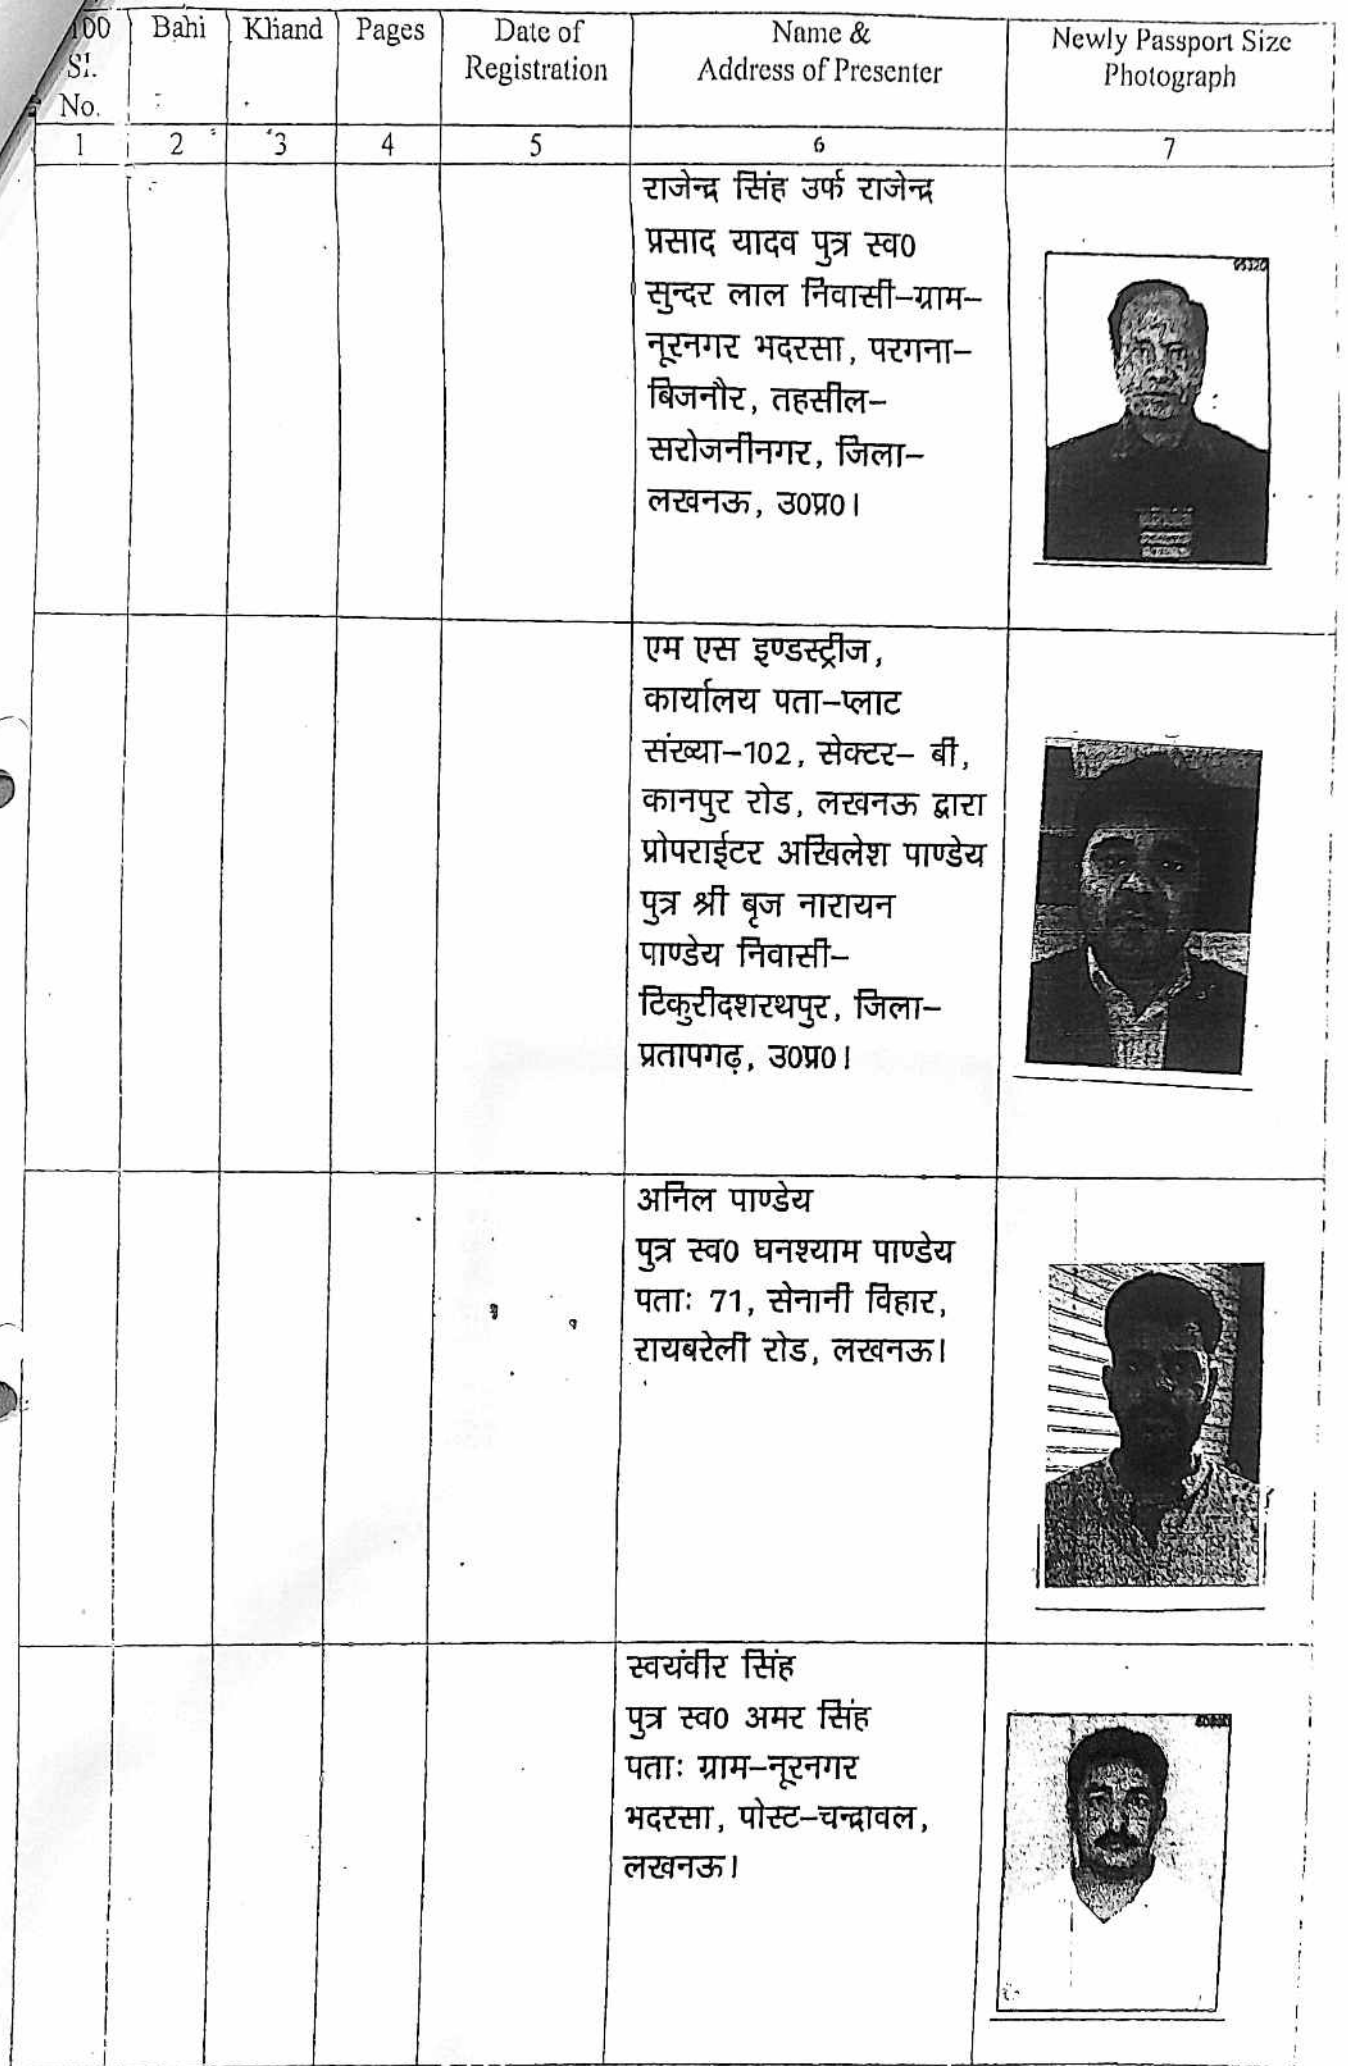 100 Sl. No. Bahi Khand Pages Date of Registration Name & Address of Presenter Newly Passport Size Photograph
1 2 3 4 5 6 7
राजेन्द्र सिंह उर्फ राजेन्द्र
प्रसाद यादव पुत्र स्व0
सुन्दर लाल निवासी–ग्राम–
नूरनगर भदरसा, परगना–
बिजनौर, तहसील–
सरोजनीनगर, जिला–
लखनऊ, उ0प्र0।
एम एस इण्डस्ट्रीज,
कार्यालय पता–प्लाट
संख्या–102, सेक्टर– बी,
कानपुर रोड, लखनऊ द्वारा
प्रोपराईटर अखिलेश पाण्डेय
पुत्र श्री बृज नारायन
पाण्डेय निवासी–
टिकुरीदशरथपुर, जिला–
प्रतापगढ़, उ0प्र0।
अनिल पाण्डेय
पुत्र स्व0 घनश्याम पाण्डेय
पताः 71, सेनानी विहार,
रायबरेली रोड, लखनऊ।
स्वयंवीर सिंह
पुत्र स्व0 अमर सिंह
पताः ग्राम–नूरनगर
भदरसा, पोस्ट–चन्द्रावल,
लखनऊ।